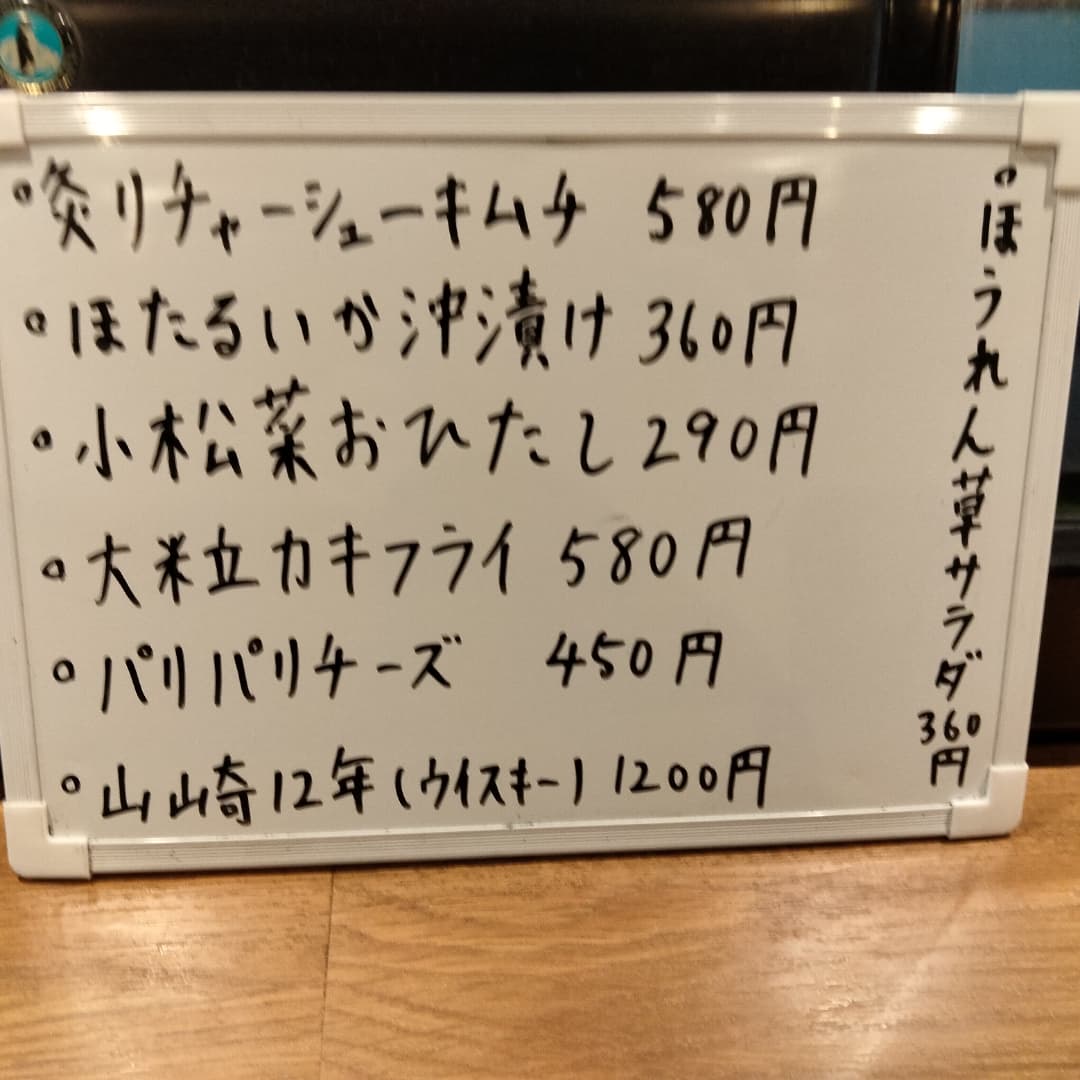 ◦炙りチャーシューキムチ 580円
◦ほたるいか沖漬け 360円
◦小松菜おひたし 290円
◦大粒カキフライ 580円
◦パリパリチーズ 450円
◦山崎12年(ウイスキー) 1200円
◦ほうれん草サラダ 360円